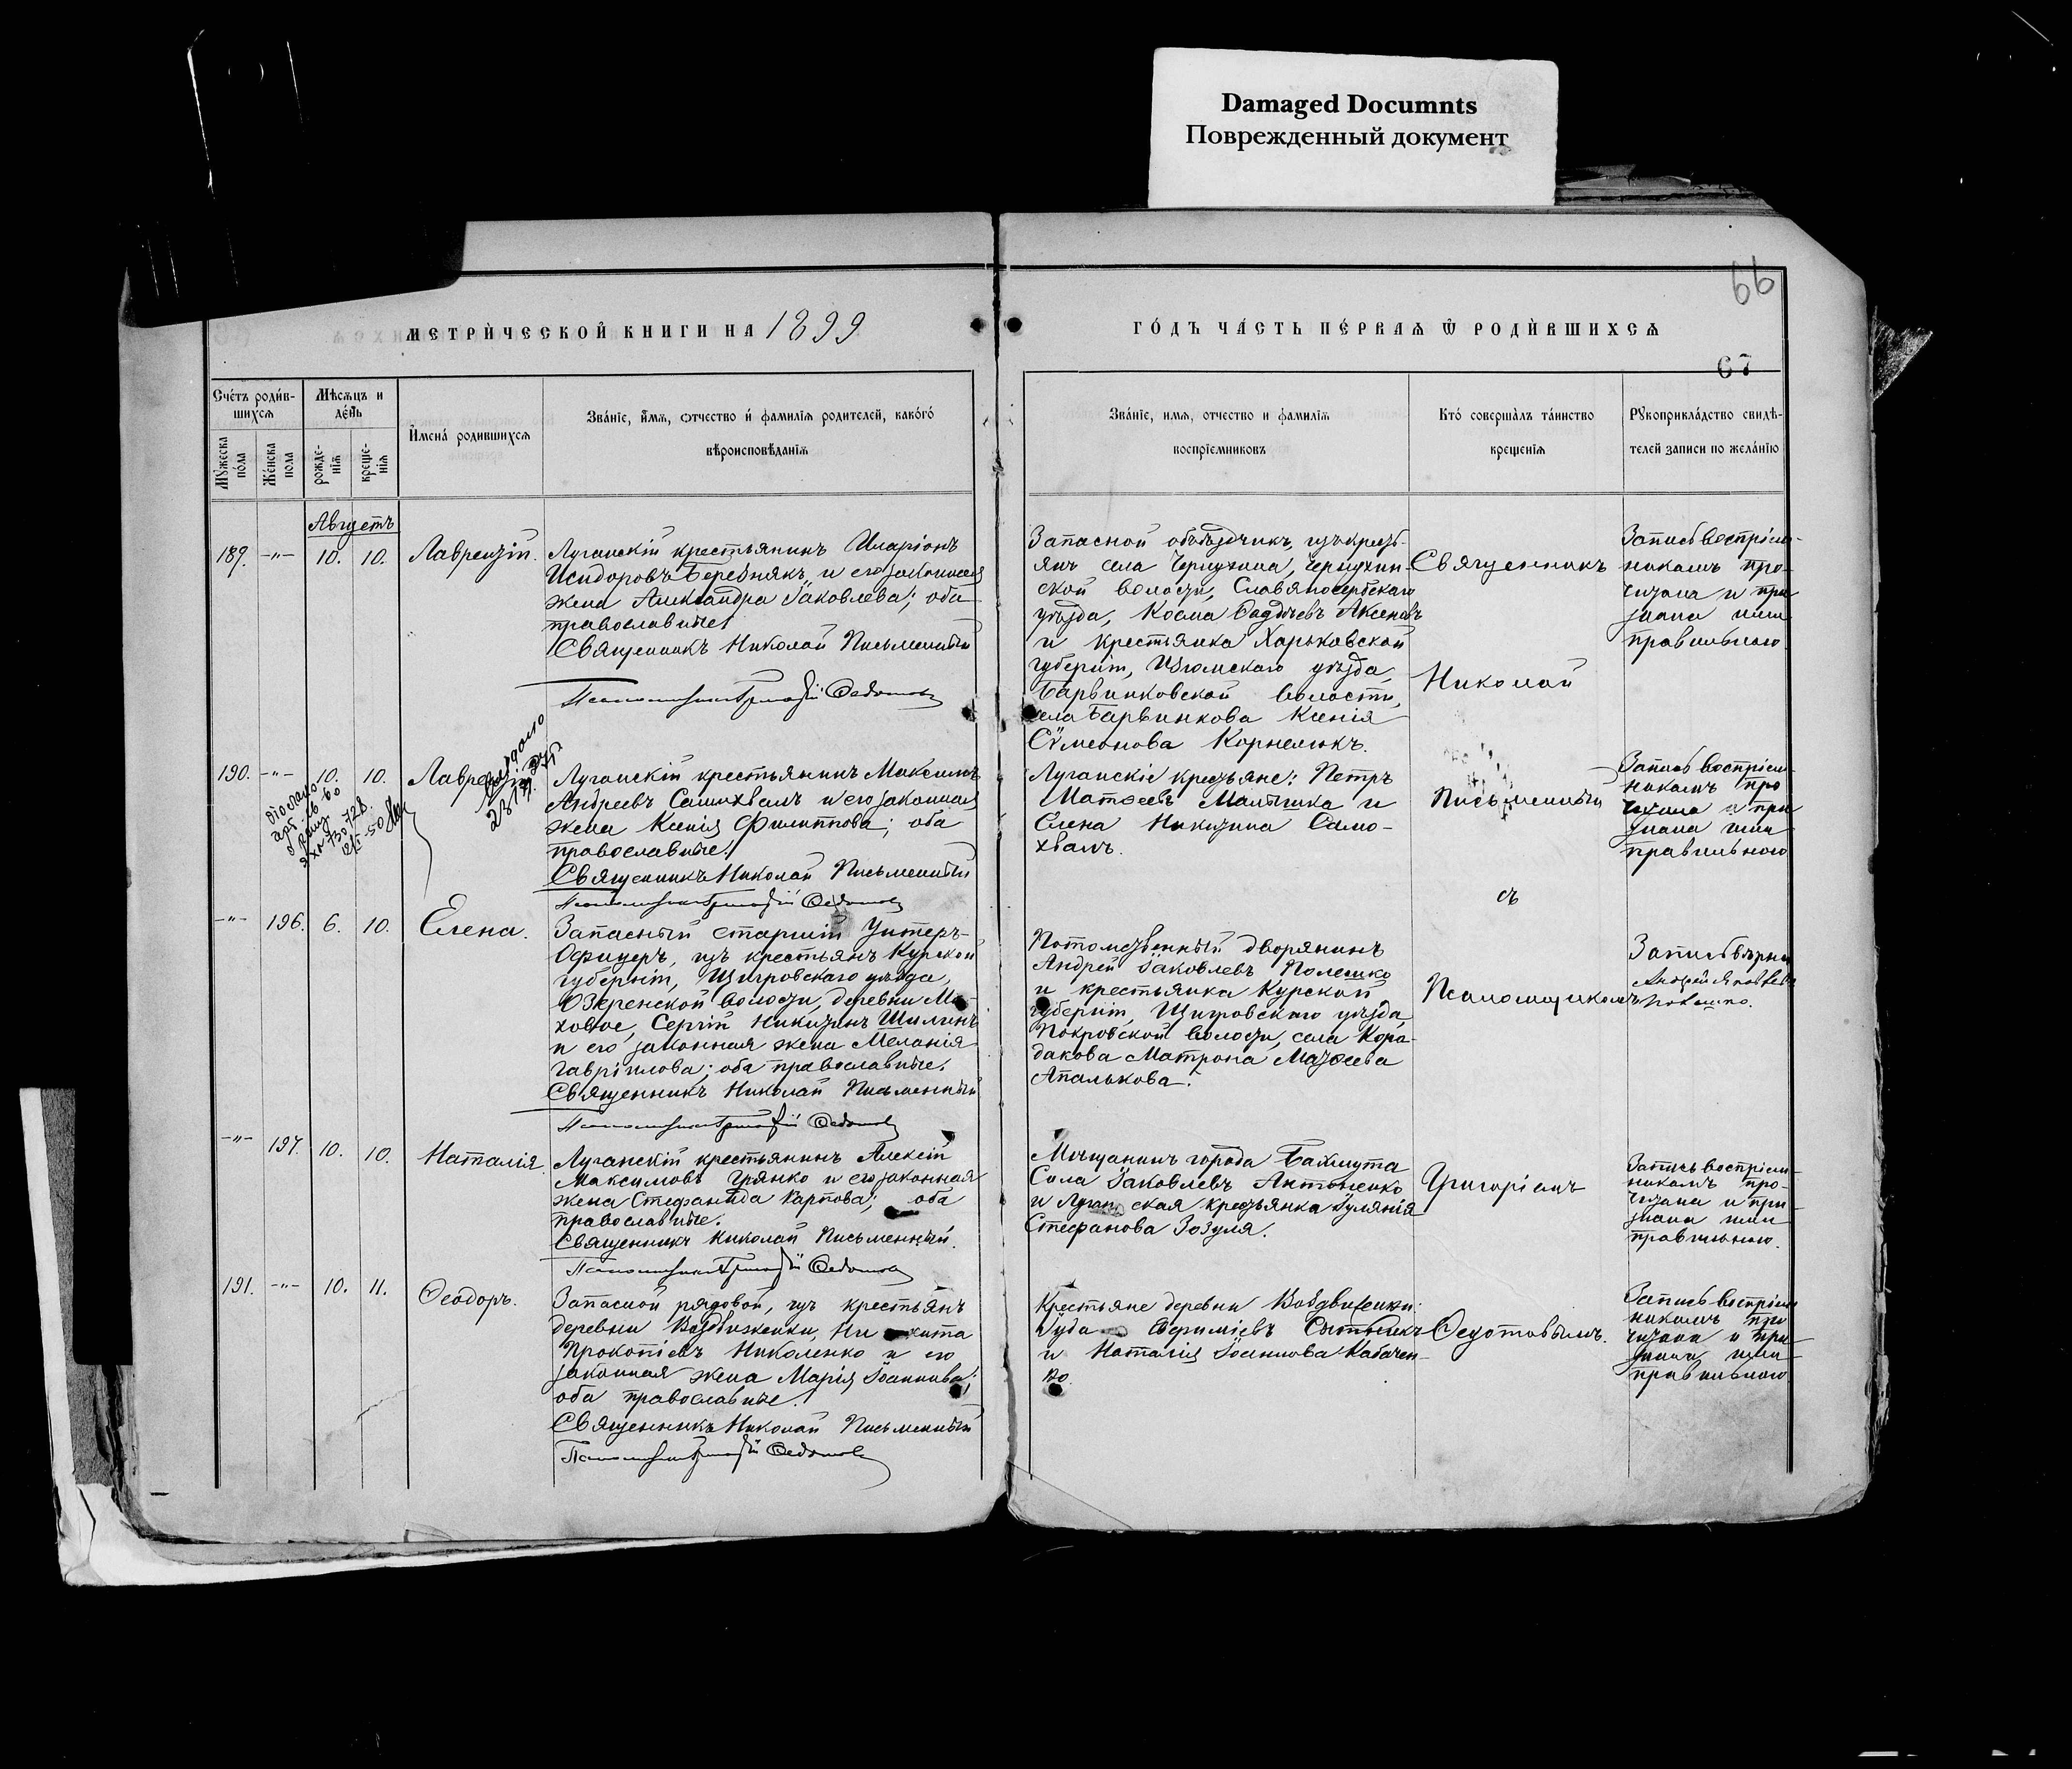 Damaged Documnts
Поврежденный документ
66
МЕТРИ́ЧЕСКОЙ КНИГИ НА 1899
ГО́ДЪ ЧА́СТЬ ПЕ́РВАѦ Ѿ РОДИ́ВШИХСѦ
67
Сче́тъ роди́в-
шихсѧ
Мѣсѧцъ и
де́нь
Мꙋ́жеска
по́ла
Же́нска
пола
рожде-
нїѧ
креще-
нїѧ
И҆мена́ родившихсѧ
Зва́нїе, и҆мѧ, ѻтчество и҆ фамилїѧ родителей, како́гѡ
вѣроисповѣданїѧ
Зва́нїе, имѧ, отчество и фамилїѧ
воспрїемниковъ
Кто́ соверша́лъ та́инство
крещенїѧ
Рꙋкоприкла́дство свидѣ-
телей записи по жела́нїю
Августъ
189. -"- 10. 10. Лаврентій.
Луганскій крестьянинъ Иларіонъ
Исидоровъ Бережнякъ и его законная
жена Александра Іаковлева; оба
православные.
Священникъ Николай Письменный
Псаломщикъ Григорій Федотовъ
Запасной объѣздчикъ, изъ кресть-
янъ села Черкухина, Черкухин-
ской волости, Славяносербскаго
уѣзда, Косма Фаддѣевъ Аксеновъ
и крестьянка Харьковской
губерніи, Изюмскаго уѣзда,
Барвинковской волости,
села Барвинкова Ксенія
Сѵмеонова Корнелюкъ.
Священникъ
Николай
Запись воспріем-
никамъ про-
читана и при
знана ими
правильною.
190. -"- 10. 10. Лаврентій
Луганскій крестьянинъ Максимъ
Андреевъ Самихвалъ и его законная
жена Ксенія Филиппова; оба
православные.
Священникъ Николай Письменный
Псаломщикъ Григорій Федотовъ
Луганскіе крестьяне: Петръ
Матѳеевъ Малышка и
Елена Никитина Само-
хвалъ.
Письменный
съ
Запись воспріем-
никамъ про
читана и при
знана ими
правильною
-"- 196. 6. 10. Елена.
Запасный старшій Унтеръ-
Офицеръ, изъ крестьянъ Курской
губерніи, Щигровскаго уѣзда,
Озеренской волости, деревни Мо-
ховое, Сергій Никитинъ Шилинъ
и его законная жена Меланія
Гавріилова; оба православные.
Священникъ Николай Письменный
Псаломщикъ Григорій Федотовъ
Потомственный дворянинъ
Андрей Іаковлевъ Полешко
и крестьянка Курской
губерніи, Щигровскаго уѣзда,
Покровской волости, села Кора-
дакова Матрона Матѳеева
Апалькова.
Псаломщикомъ
Запись вѣрна
Андрей Яковлевъ
-"- 197. 10. 10. Наталія.
Луганскій крестьянинъ Алексій
Максимовъ Грянко и его законная
жена Стефанида Карпова; оба
православные.
Священникъ Николай Письменный.
Псаломщикъ Григорій Федотовъ
Мѣщанинъ города Бахмута
Сила Іаковлевъ Антоненко
и Луганская крестьянка Іулянія
Стефанова Зозуля.
Григоріемъ
Запись воспріем-
никамъ про-
читана и при-
знана ими
правильною.
191. -"- 10. 11. Ѳеодоръ.
Запасной рядовой, изъ крестьянъ
деревни Воздвиженки, Никита
Прокопіевъ Николенко и его
законная жена Марія Іоаннова;
оба православные.
Священникъ Николай Письменный
Псаломщикъ Григорій Федотовъ
Крестьяне деревни Воздвиженки:
Іуда Евфиміевъ Сытникъ
и Наталія Іоаннова Кабачен-
ко.
Ѳедотовымъ.
Запись воспріем
никамъ про
читана и при
знана ими
правильною